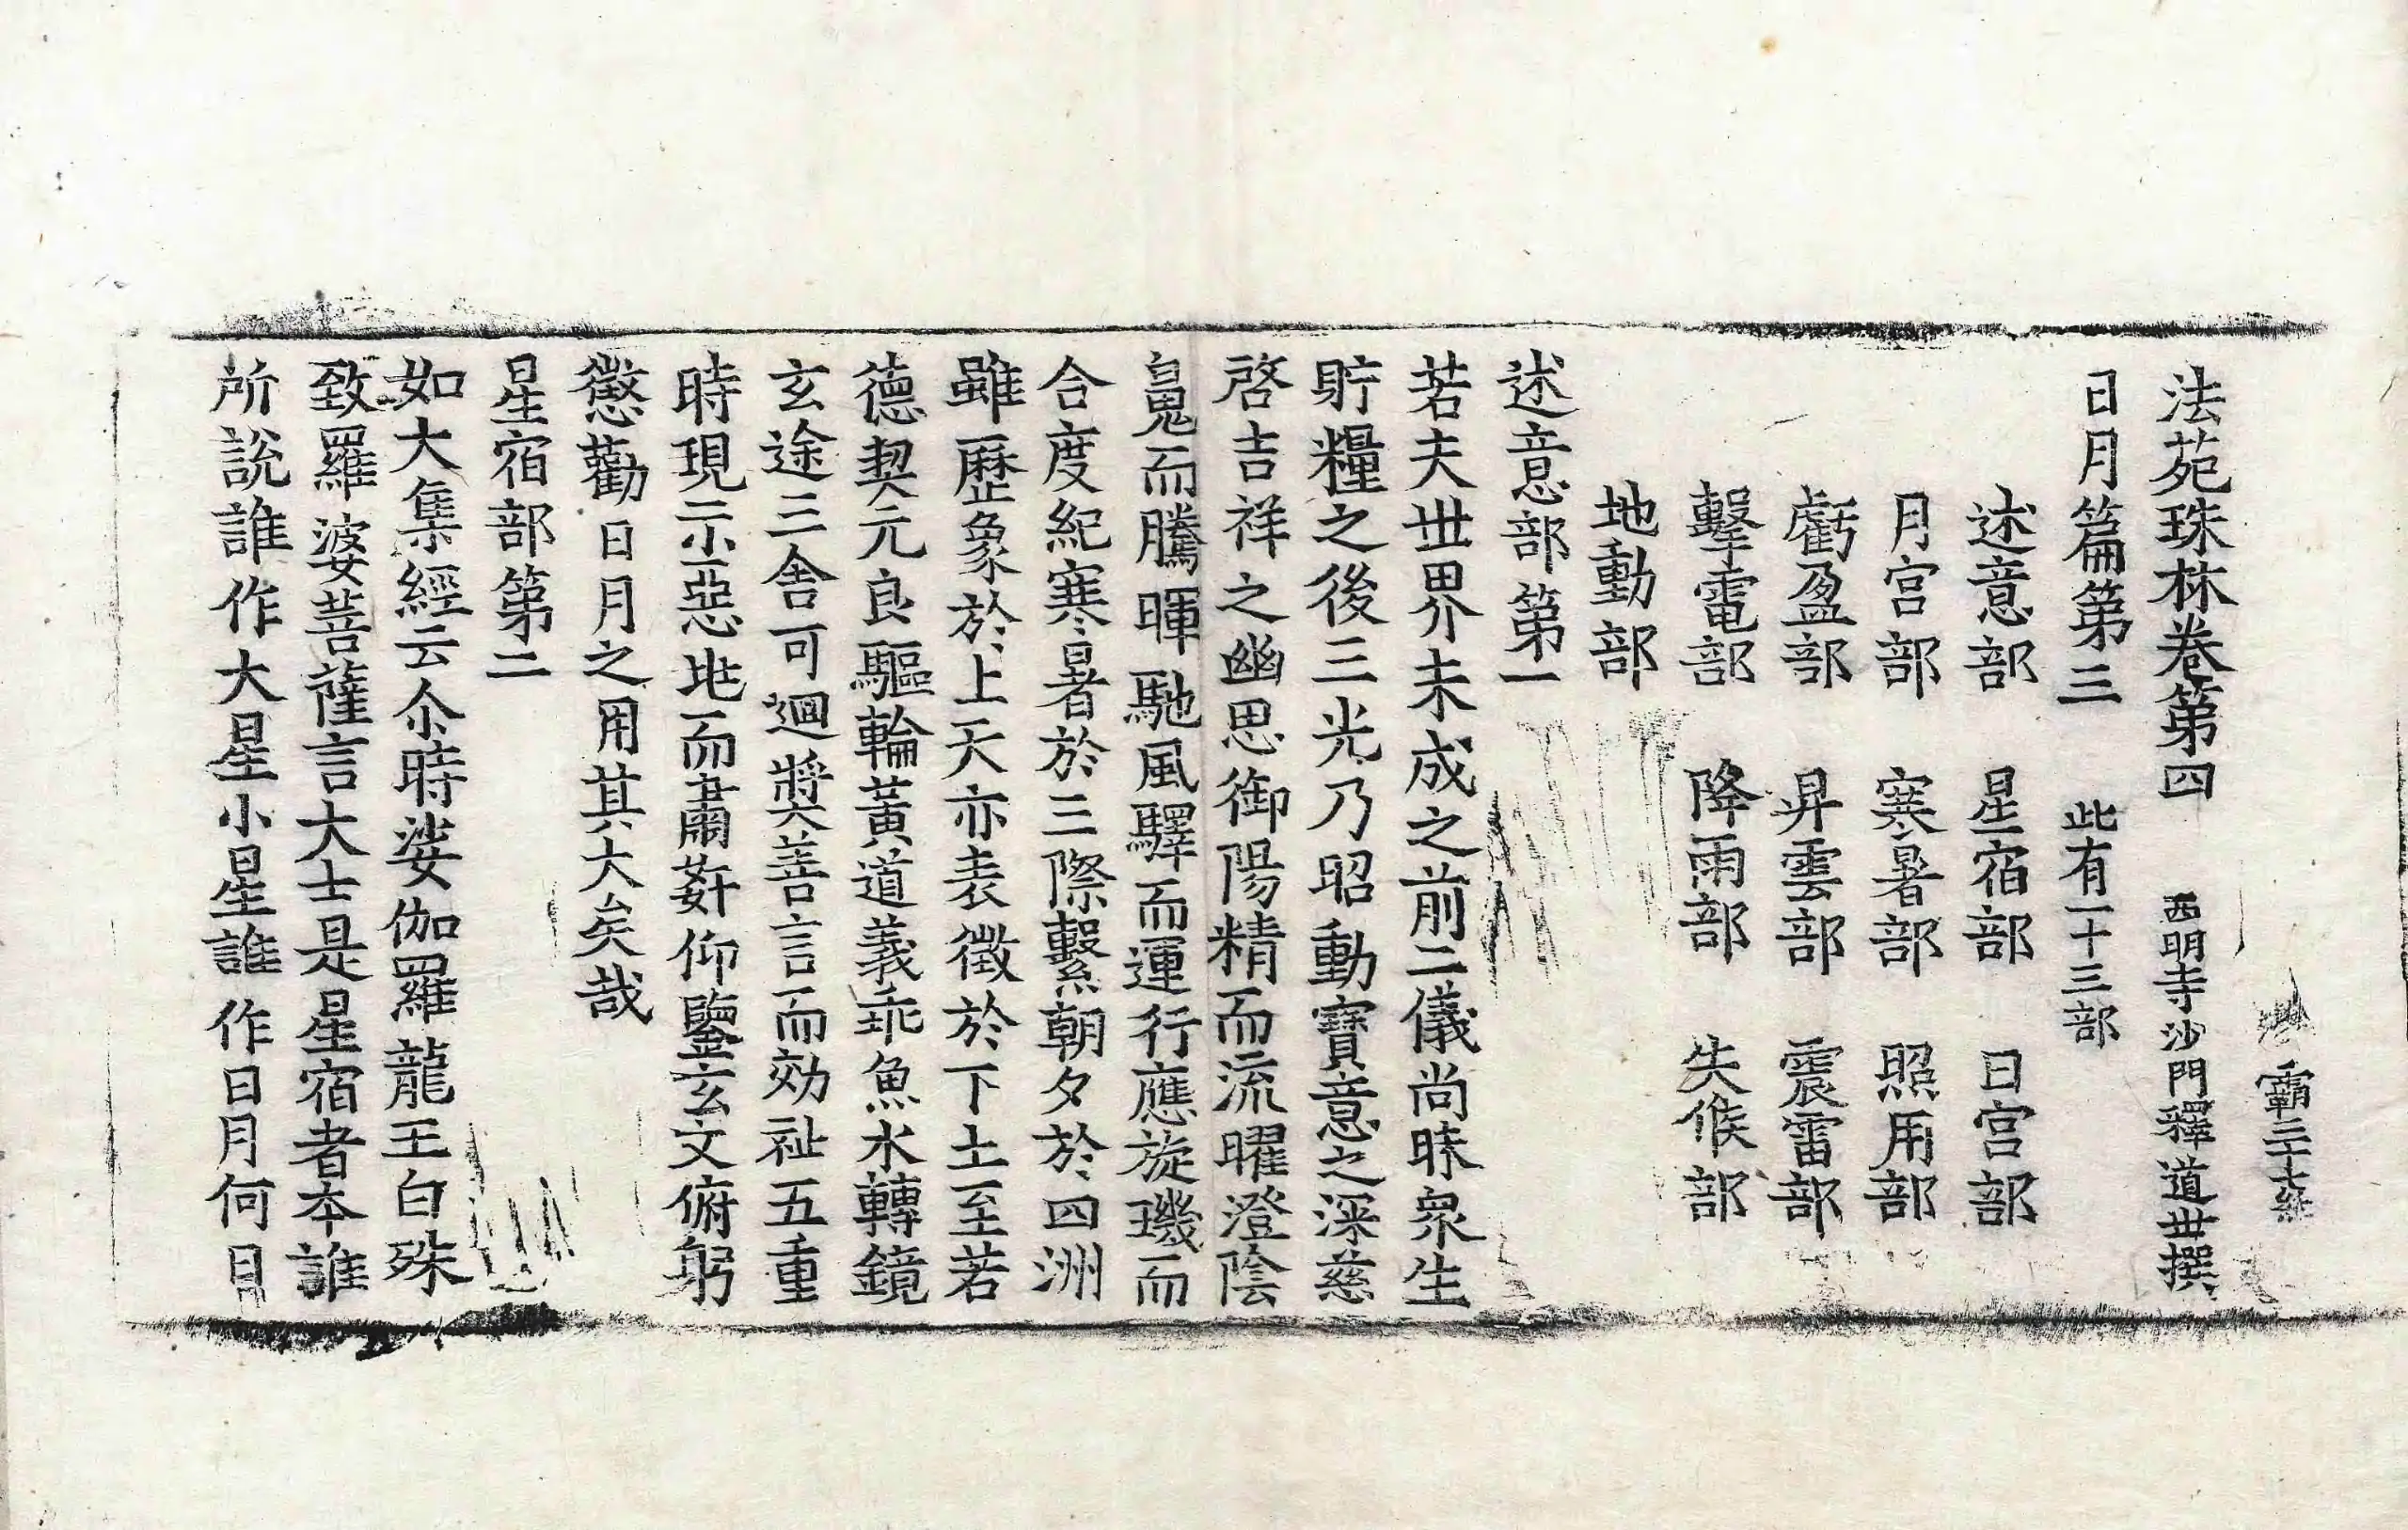 霸
法苑珠林卷第四 西明寺沙門釋道世撰
日月篇第三 此有一十三部
述意部 星宿部 日宫部
月宫部 寒暑部 照用部
虧盈部 昇雲部 震雷部
擊電部 降雨部 失候部
地動部
述意部第一
若夫世界未成之前二儀尚昧衆生
貯糧之後三光乃昭動寶意之深慈
啓吉祥之幽思御陽精而流曜澄陰
鬼而騰暉馳風驛而運行應旋璣而
合度紀寒暑於三際繫朝夕於四洲
雖歷象於上天亦表徵於下土至若
德契元良驅輪黃道義乖魚水轉鏡
玄途三舍可迴奬善言而効祉五重
時現示惡迣而肅姧仰鑒玄文俯躬
懲勸日月之用其大矣哉
星宿部第二
如大集經云尒時娑伽羅龍王白殊
致羅婆菩薩言大士是星宿者本誰
所說誰作大星小星誰作日月何日